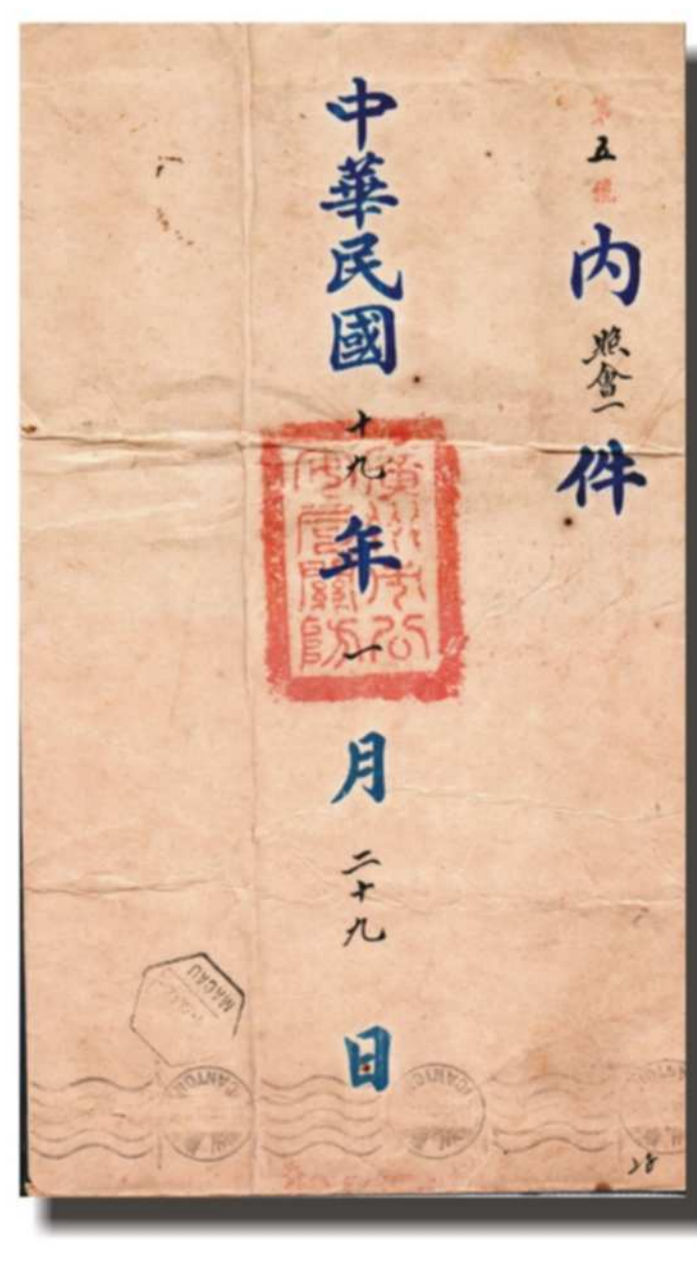 第五號
内照會一件
中華民國十九年一月二十九日
廣州市公
安局關防
MACAU
CANTON
CANTON
28